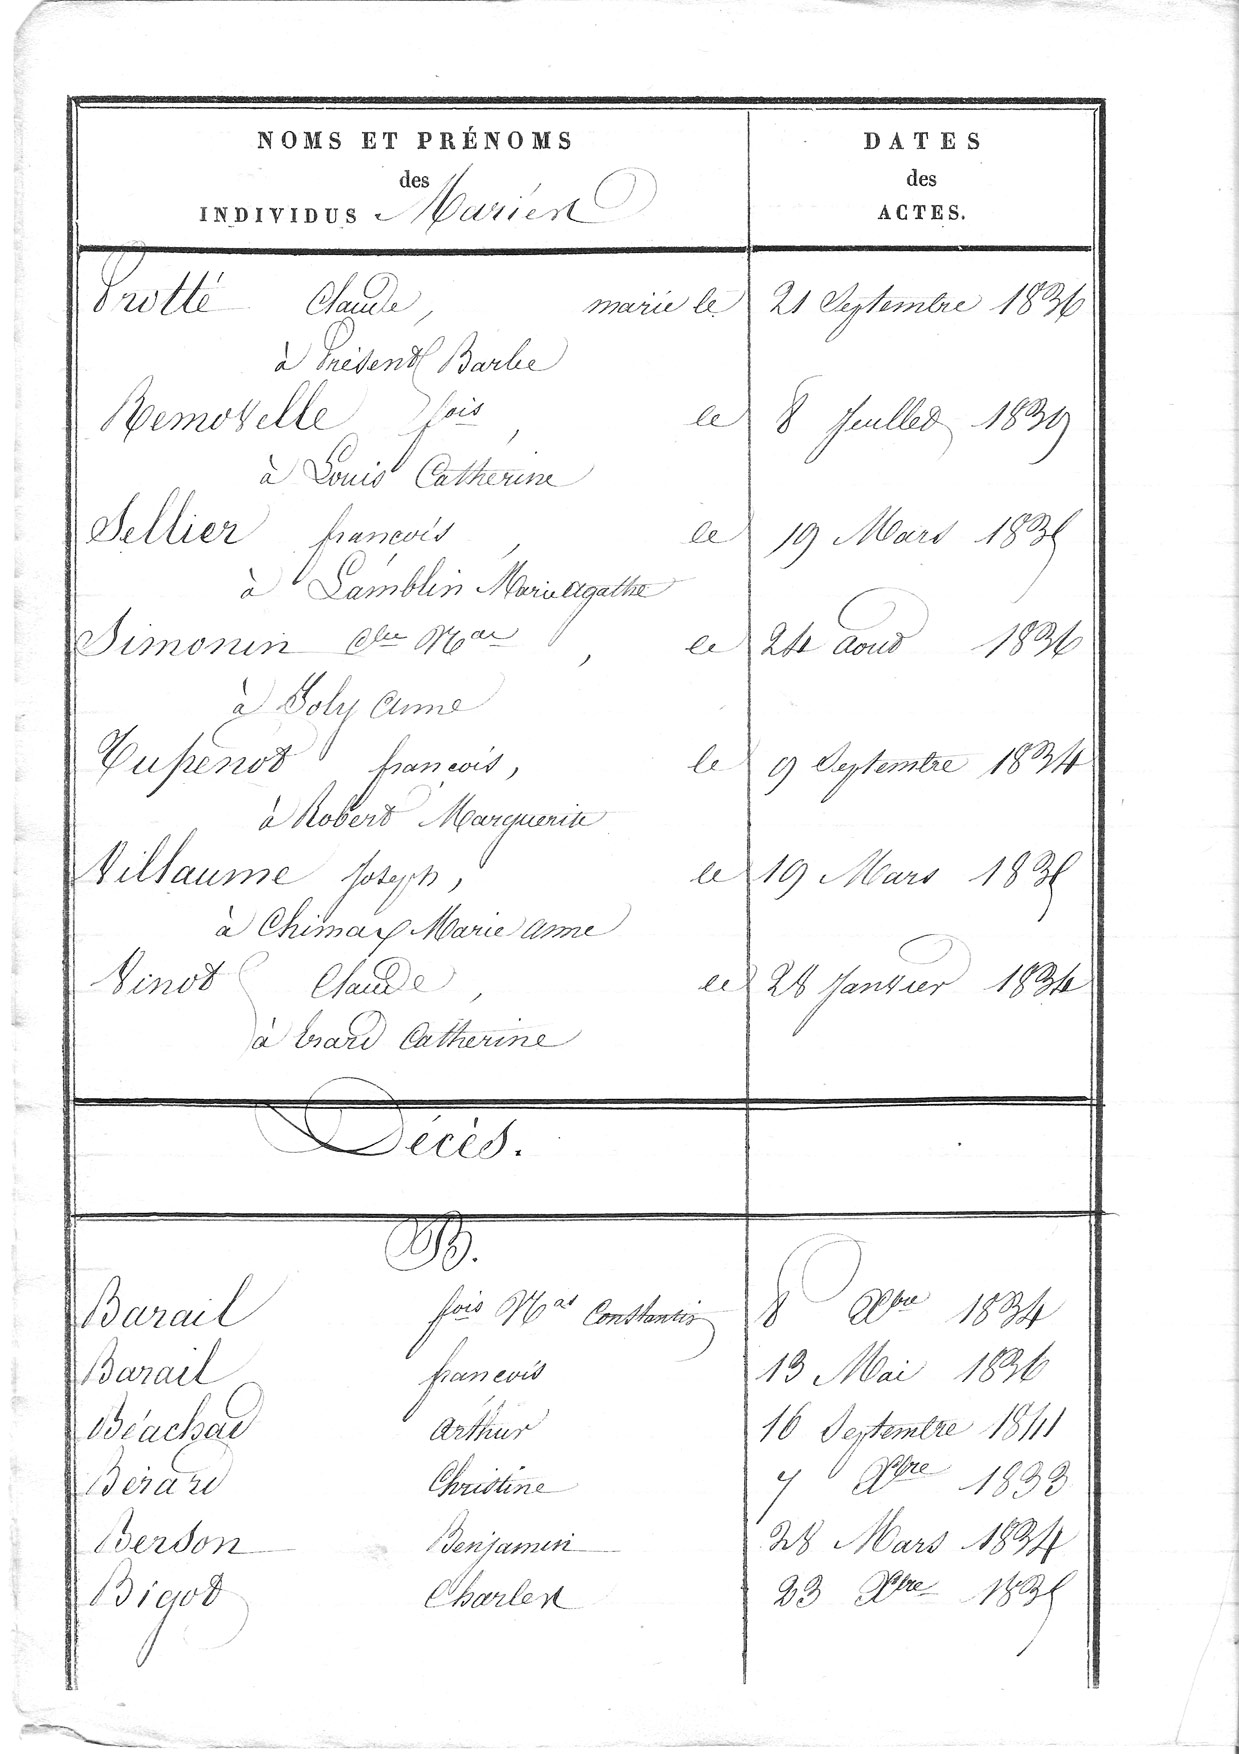 NOMS ET PRÉNOMS
des
INDIVIDUS Mariés
DATES
des
ACTES.
Protté Claude, marié le 21 Septembre 1836
à Présent Barbe
Removelle fois, le 8 Juillet 1839
à Louis Catherine
Sellier françois, le 19 Mars 1835
à Lamblin Marie agathe
Simonin Cde Mae, le 24 aout 1836
à Joly anne
Tupenot françois, le 9 Septembre 1834
à Robert Marguerite
Villaume Joseph, le 19 Mars 1835
à Chimay Marie anne
Vinot Claude, le 28 Janvier 1834
à Erard Catherine
Décès.
B.
Barail fois Mas Constantin 8 Xbre 1834
Barail françois 13 Mai 1836
Béachad arthur 16 Septembre 1841
Bérard Christine 7 Xbre 1833
Berson Benjamin 28 Mars 1834
Bigot Charles 23 Xbre 1835